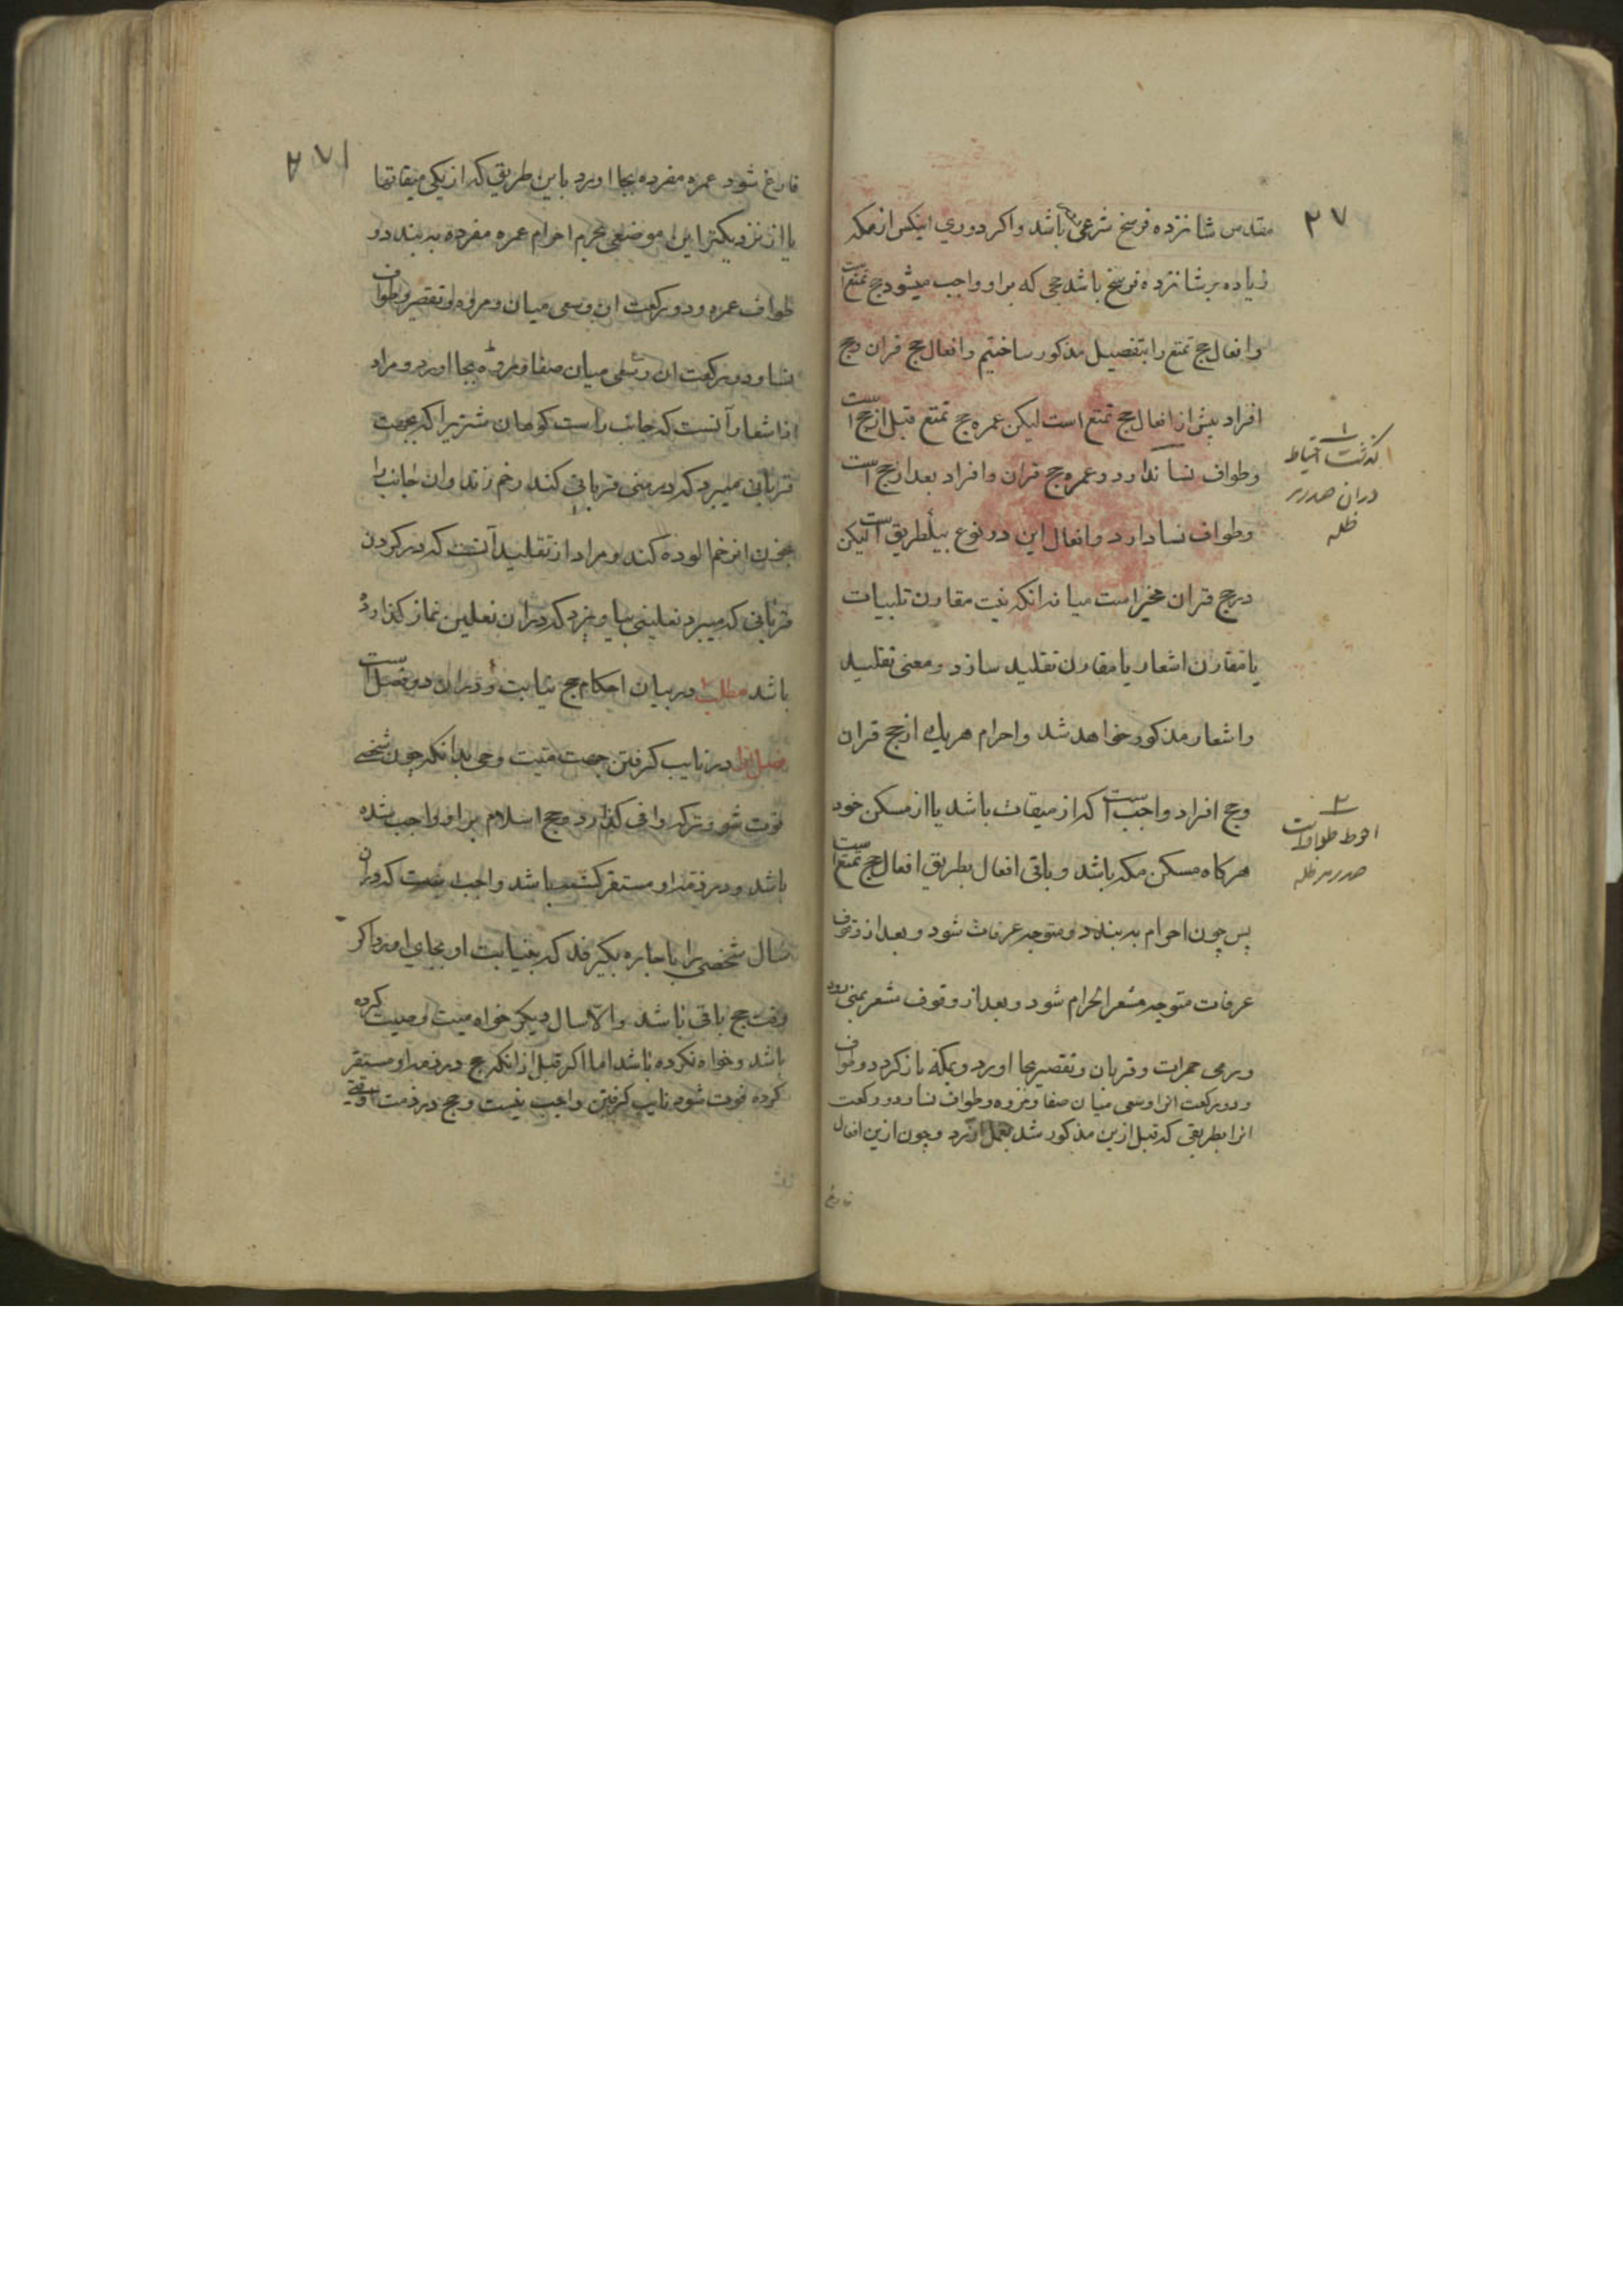 ۲۷
مقدس شانزده فرسخ شرعی باشد واکر دوری اینکس از مکه
زیاده بر شانزده فرسخ باشد حجی که براو واجب میشود حج تمتع است
وافعال حج تمتع را بتفصیل مذکور ساختیم وافعال حج قران وحج
افراد بیش از افعال حج تمتع است لیکن عمره حج تمتع قبل از حج است
وطواف نسا ندارد وعمره حج قران وافراد بعد از حج است
وطواف نسا دارد وافعال این دو نوع بیکطریق است لیکن
در حج قران مخیر است میانه انکه نیت مقارن تلبیات
یا مقارن اشعار یا مقارن تقلید سازد ومعنی تقلید
واشعار مذکور خواهد شد واحرام هریك از حج قران
وحج افراد واجب است که از میقات باشد یا از مسکن خود
هرکاه مسکن مکه باشد وباقی افعال بطریق افعال حج تمتع است
پس چون احرام به بندد ومتوجه عرفات شود وبعد از وقوف
عرفات متوجه مشعر الحرام شود وبعد از وقوف مشعر بمنی رود
ورمی جمرات وقربان وتقصیر بجا اورد وبمکه بازکردد وطواف
ودو رکعت انرا وسعی میان صفا ومروه وطواف نسا ودو رکعت
انرا بطریقی که قبل ازین مذکور شد بعمل اورد وچون ازین افعال
فارغ
۱
کذشت احتیاط
دران صدر
ظله
۲
احوط طواف است
صدر ظله
فارغ شود عمره مفرده بجا اورد باین طریق که از یکی میقاتها
یا از نزدیکترین موضعی بحرم احرام عمره مفرده به بندد و
طواف عمره ودو رکعت ان وسعی میان ومروه وتقصیر وطواف
نسا ودو رکعت ان وسعی میان صفا ومروه بجا اورد ومراد
از اشعار آنست که جانب راست کوهان شتر را که بجهت
قربانی میبرد که در منی قربانی کند زخم زند وان جانب را
بخون ان زخم الوده کند ومراد از تقلید آنست که در کردن
قربانی که میبرد نعلینی بیاویزد که دران نعلین نماز کذارده
باشد مطلب در بیان احکام حج نیابت ودران دو فصل است
فصل اول در نایب کرفتن جهت میت وحی بدانکه چون شخصی
فوت شود وترکه وافی کذارد وحج اسلام براو واجب شده
باشد ودر ذمه او مستقر کشته باشد واجب است که دران
سال شخصی را باجاره بکیرند که بنیابت او بجای اورد اکر
وقت حج باقی باشد والا سال دیکر خواه میت وصیت کرده
باشد وخواه نکرده باشد اما اکر قبل از انکه حج در ذمه او مستقر
کردد فوت شود نایب کرفتن واجب نیست وحج در ذمت او وقتی